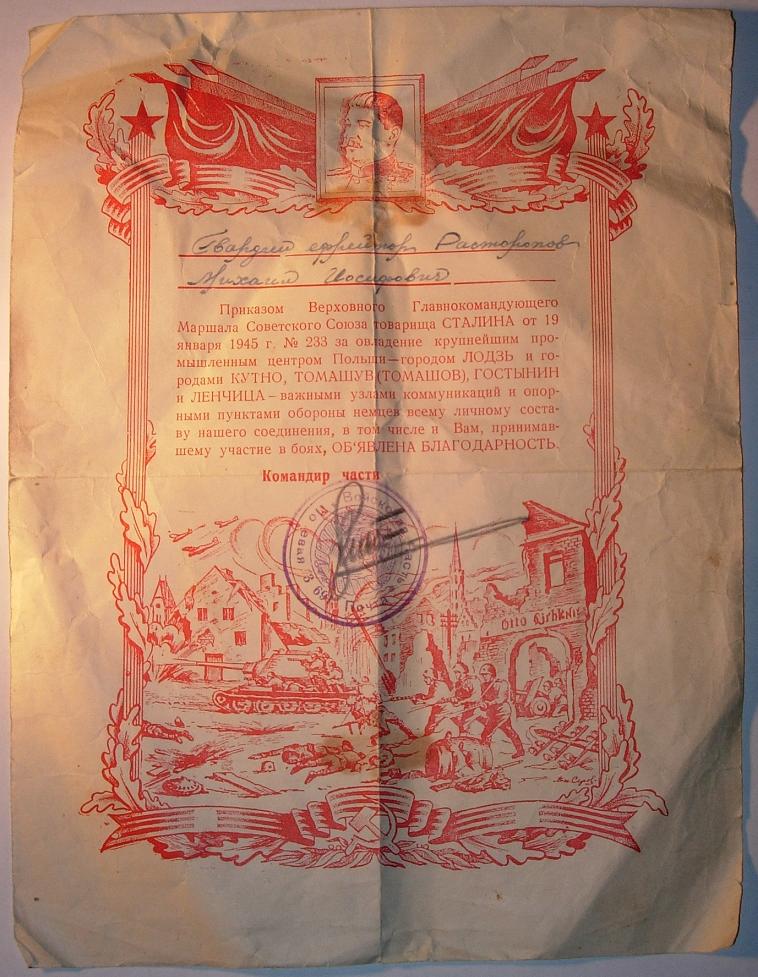 Гвардии ефрейтор Расторопов
Михаил Иосифович
Приказом Верховного Главнокомандующего
Маршала Советского Союза товарища СТАЛИНА от 19
января 1945 г. № 233 за овладение крупнейшим про-
мышленным центром Польши—городом ЛОДЗЬ и го-
родами КУТНО, ТОМАШУВ (ТОМАШОВ), ГОСТЫНИН
и ЛЕНЧИЦА – важными узлами коммуникаций и опор-
ными пунктами обороны немцев всему личному соста-
ву нашего соединения, в том числе и Вам, принимав-
шему участие в боях, ОБ'ЯВЛЕНА БЛАГОДАРНОСТЬ.
Командир части
Otto